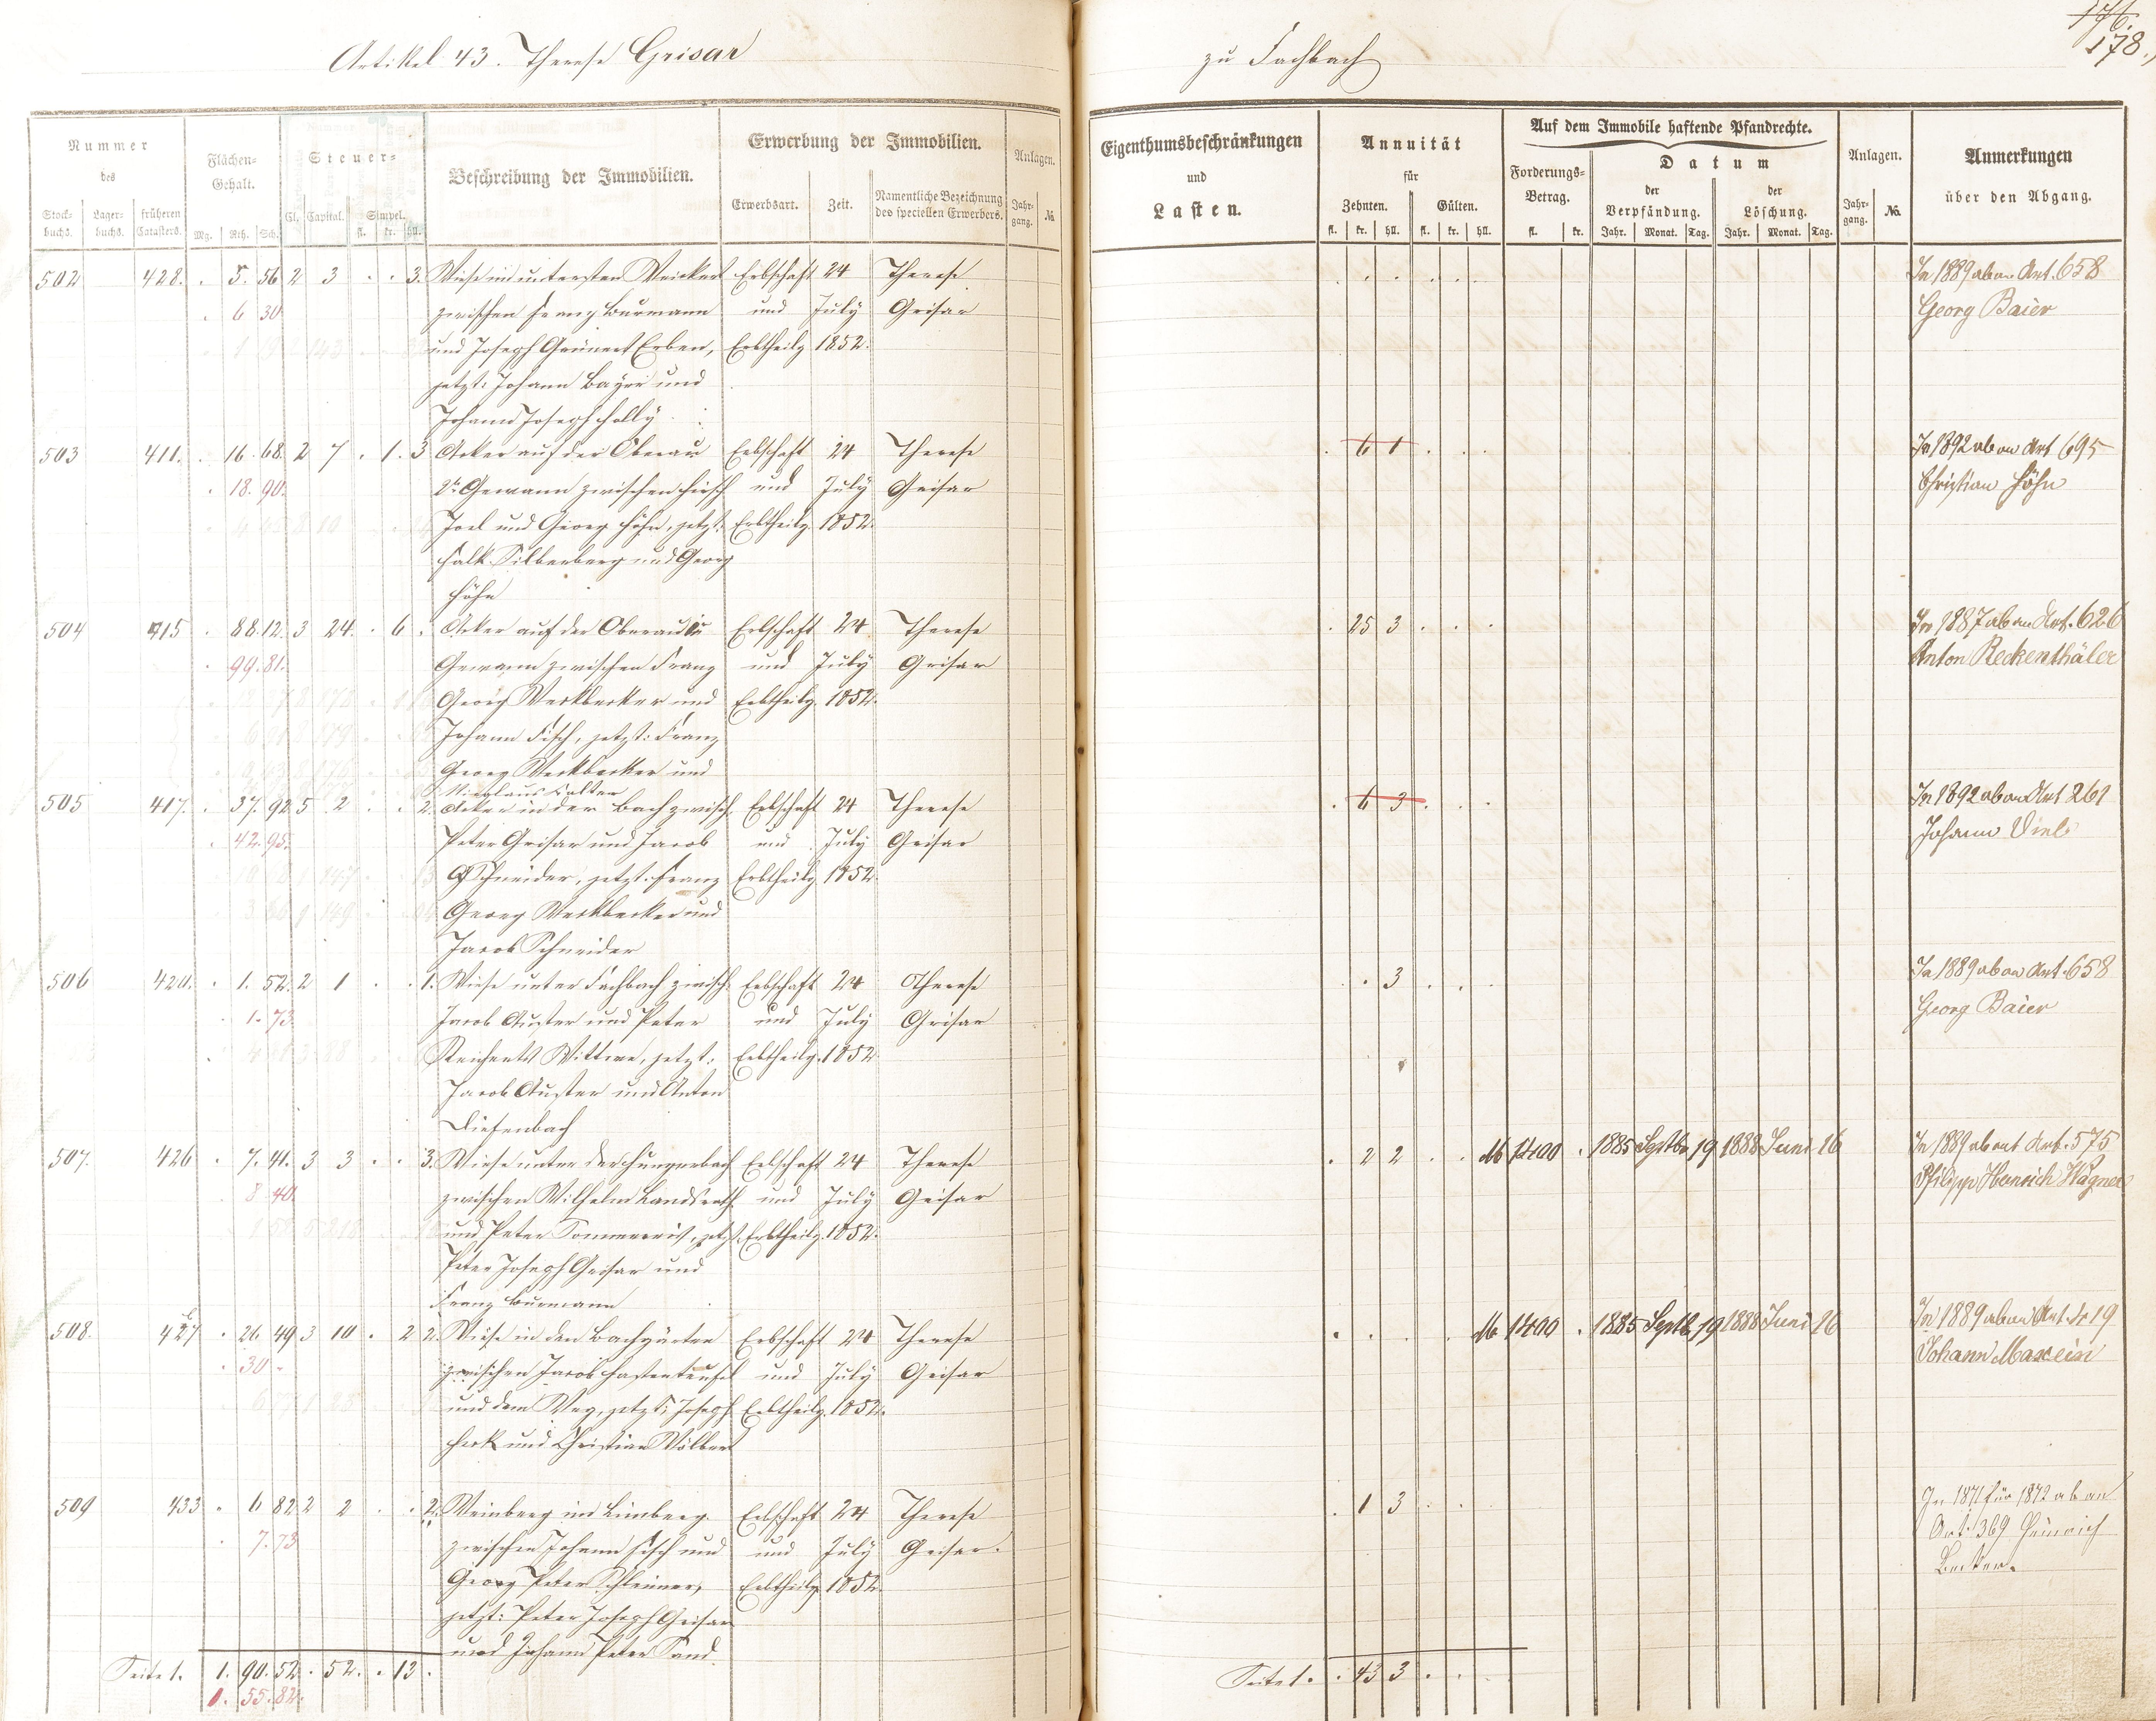 Artikel 43. Therese Grisar
zu Fachbach
176.
178.
Nummer des
Flächen-Gehalt.
Steuer-
Beschreibung der Immobilien.
Erwerbung der Immobilien.
Anlagen.
Stock-buchs. Lager-buchs. früheren Catasters. Mg. Rth. Sch. Cl. Capital. Simpel. fl. kr. hll.
Erwerbsart. Zeit. Namentliche Bezeichnung des speciellen Erwerbers. Jahr-gang. №.
Eigenthumsbeschränkungen und Lasten.
Annuität für
Zehnten. Gülten.
fl. kr. hll. fl. kr. hll.
Auf dem Immobile haftende Pfandrechte.
Forderungs-Betrag. fl. kr.
Datum
der Verpfändung. Jahr. Monat. Tag.
der Löschung. Jahr. Monat. Tag.
Anlagen. Jahr-gang. №.
Anmerkungen über den Abgang.
502 428. . 5. 56 2 3 . . 3. Wiese im untersten Weickert Erbschaft 24 Therese
. 6 30 zwischen Franz Burmann und July Grisar
und Joseph Grünert Erben, Erbtheilg 1852.
jetzt: Johann Bayer und
Johann Joseph Holly
In 1889 ab an Art. 658
Georg Baier
503 411. . 16. 68. 2 7 . 1. 3 Acker auf der Oberau Erbschaft 24 Therese
. 18. 90. 2r Gewann zwischen Hirsch und July Grisar
Joel und Georg Höhn, jetzt: Erbtheilg. 1852.
Falk Silberberg und Georg
Höhn
. 6 1 . . .
In 1892 ab an Art 695
Christian Höhn
504 415 . 88. 12. 3 24. . 6 . Acker auf der Oberau 1r Erbschaft 24 Therese
. 99. 81. Gewann zwischen Franz und July Grisar
Georg Weckbecker und Erbtheilg. 1852.
Johann Fisch, jetzt: Franz
Georg Weckbecker und
Nicolaus Falter
. 25 3 . . .
In 1887 ab an Art. 626
Anton Reckenthäler
505 417. . 37. 92. 5 2 . . 2. Acker in der Bach zwisch. Erbschaft 24 Therese
. 42. 95. Peter Grisar und Jacob und July Grisar
Schneider, jetzt: Franz Erbtheilg 1852.
Georg Weckbecker und
Jacob Schneider
. 6 3 . . .
In 1892 ab an Art 261
Johann Viel
506 420. . 1. 52. 2 1 . . 1. Wiese unter Fachbach zwisch. Erbschaft 24 Therese
. 1. 73 Jacob Auster und Peter und July Grisar
Reichents Wittwe, jetzt: Erbtheilg. 1852.
Jacob Auster und Anton
Diefenbach
. . 3 . . .
In 1889 ab an Art. 658
Georg Baier
507. 426 . 7. 41. 3 3 . . 3. Wiese unter der Hungerbach Erbschaft 24 Therese
. 8 40. zwischen Wilhelm Landsrath und July Grisar
und Peter Sommereis, jetzt. Erbtheilg. 1852.
Peter Joseph Grisar und
Franz Burmann
. 2 2 . . M 1400 . 1885 Septbr 19 1888 Juni 16
In 1889 ab an Art. 575
Philipp Heinrich Wagner
508. 427 . 26. 49 3 10 . 2 2. Wiese in den Bachgärten Erbschaft 24 Therese
. 30 - zwischen Jacob Hastenteufel und July Grisar
und dem Weg, jetzt: Joseph Erbtheilg. 1852.
Herk und Christian Wölbert
. . . . M 1400 . 1885 Septb. 19 1888 Juni 16
In 1889 ab an Art. 419
Johann Maxein
509 433 . 6 82 2 2 . . 2. Weinberg im Limberg. Erbschaft 24 Therese
. 7. 73 zwischen Johann Fisch und und July Grisar.
Georg Peter Schleimer, Erbtheilg 1852.
jetzt: Peter Joseph Grisar
und Johann Peter Sand.
. 1 3 . .
In 1871 für 1872 ab an
Art. 369 Heinrich
Becker.
Seite 1. 1. 90. 52. . 52. . 13 .
1. 55. 82.
Seite 1. . 43 3 . . .